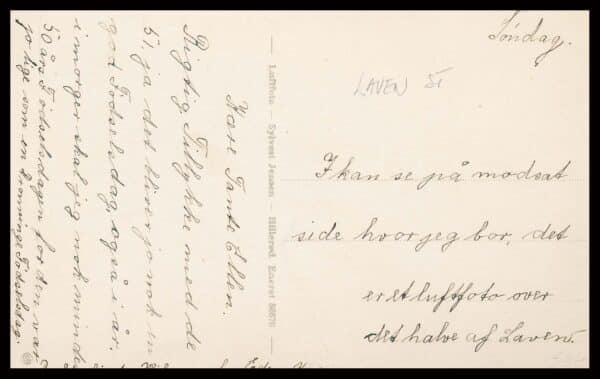 Søndag.
LAVEN ST
I kan se på modsat
side hvor jeg bor, det
er et luftfoto over
det halve af Laven.
Luftfoto — Sylvest Jensen — Hillerød. Eneret
Kære Tante Ellen.
Rigtig Tillykke med de
51, ja det bliver jo nok en
god Fødselsdag, også i år.
i morgen skal jeg nok minde
50 års Fødselsdagen for den var
jo lige som en Dronninge Fødselsdag.